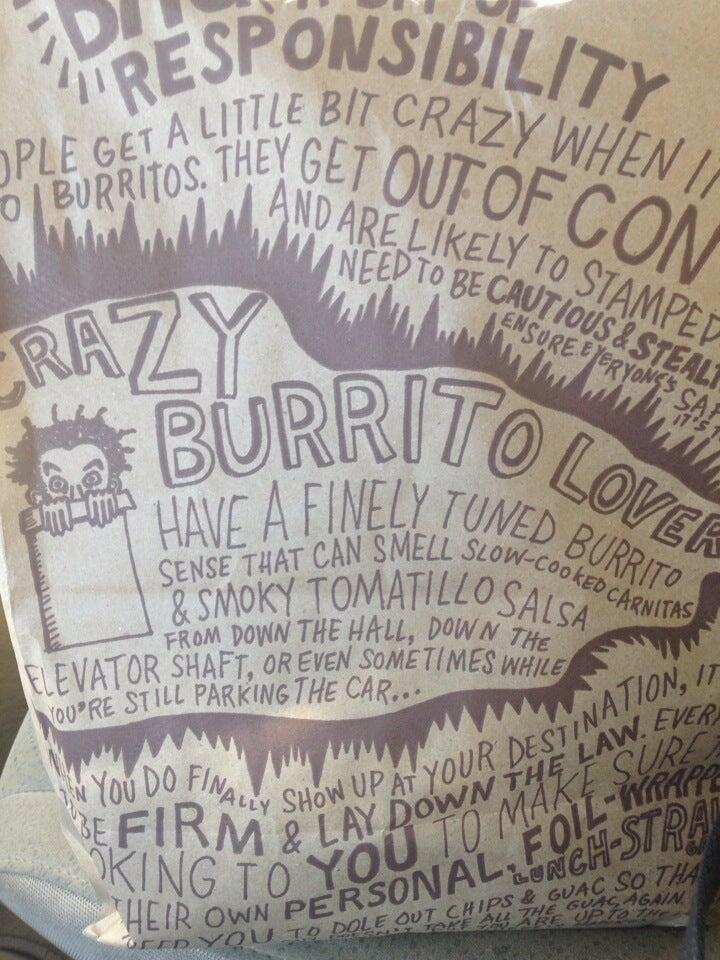 RESPONSIBILITY
OPLE GET A LITTLE BIT CRAZY WHEN I
O BURRITOS. THEY GET OUT OF CON
AND ARE LIKELY TO STAMPED
NEED TO BE CAUTIOUS & STEALT
ENSURE EVERYONE'S SA
IT'S
CRAZY
BURRITO LOVER
HAVE A FINELY TUNED BURRITO
SENSE THAT CAN SMELL SLOW-COOKED CARNITAS
& SMOKY TOMATILLO SALSA
FROM DOWN THE HALL, DOWN THE
ELEVATOR SHAFT, OR EVEN SOMETIMES WHILE
YOU'RE STILL PARKING THE CAR...
YOU DO FINALLY SHOW UP AT YOUR DESTINATION, IT
BE FIRM & LAY DOWN THE LAW. EVER
OKING TO YOU TO MAKE SURE
THEIR OWN PERSONAL, FOIL-WRAPPE
LUNCH-STRA
YOU TO DOLE OUT CHIPS & GUAC SO THA
TAKE ALL THE GUAC, AGAIN.
ARE UP TO THE